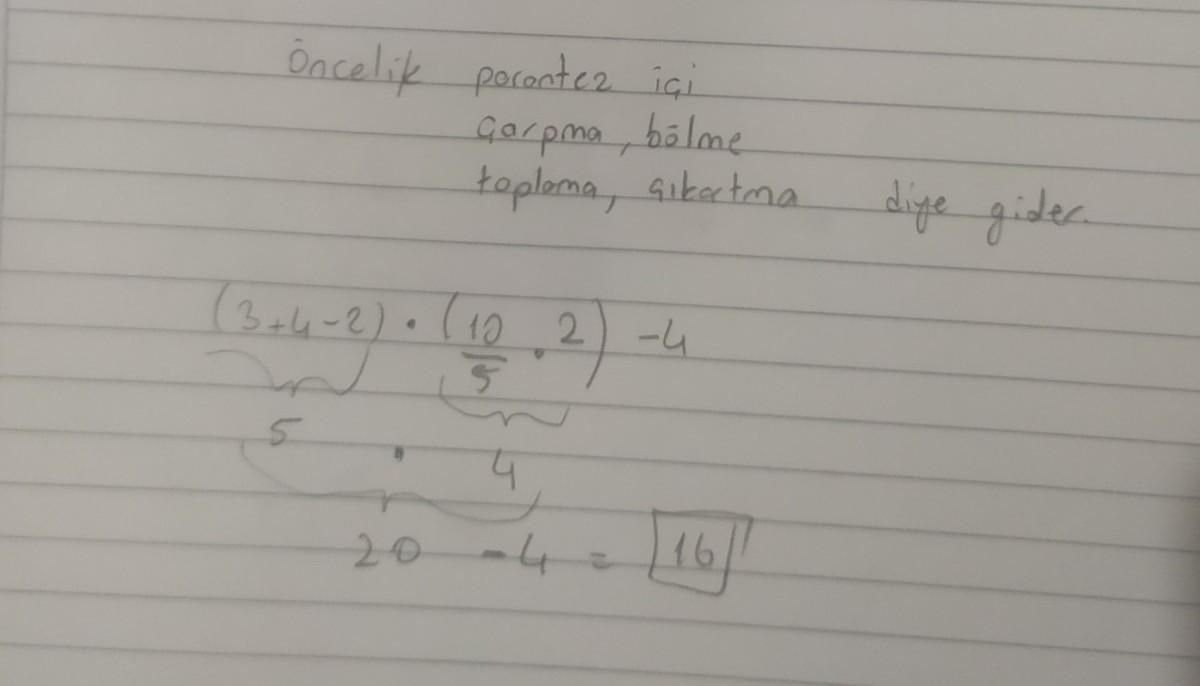 Öncelik parantez içi
çarpma, bölme
toplama, çıkartma diye gider.
(3+4-2) · (10/5 · 2) -4
5 · 4
20 -4 = 16